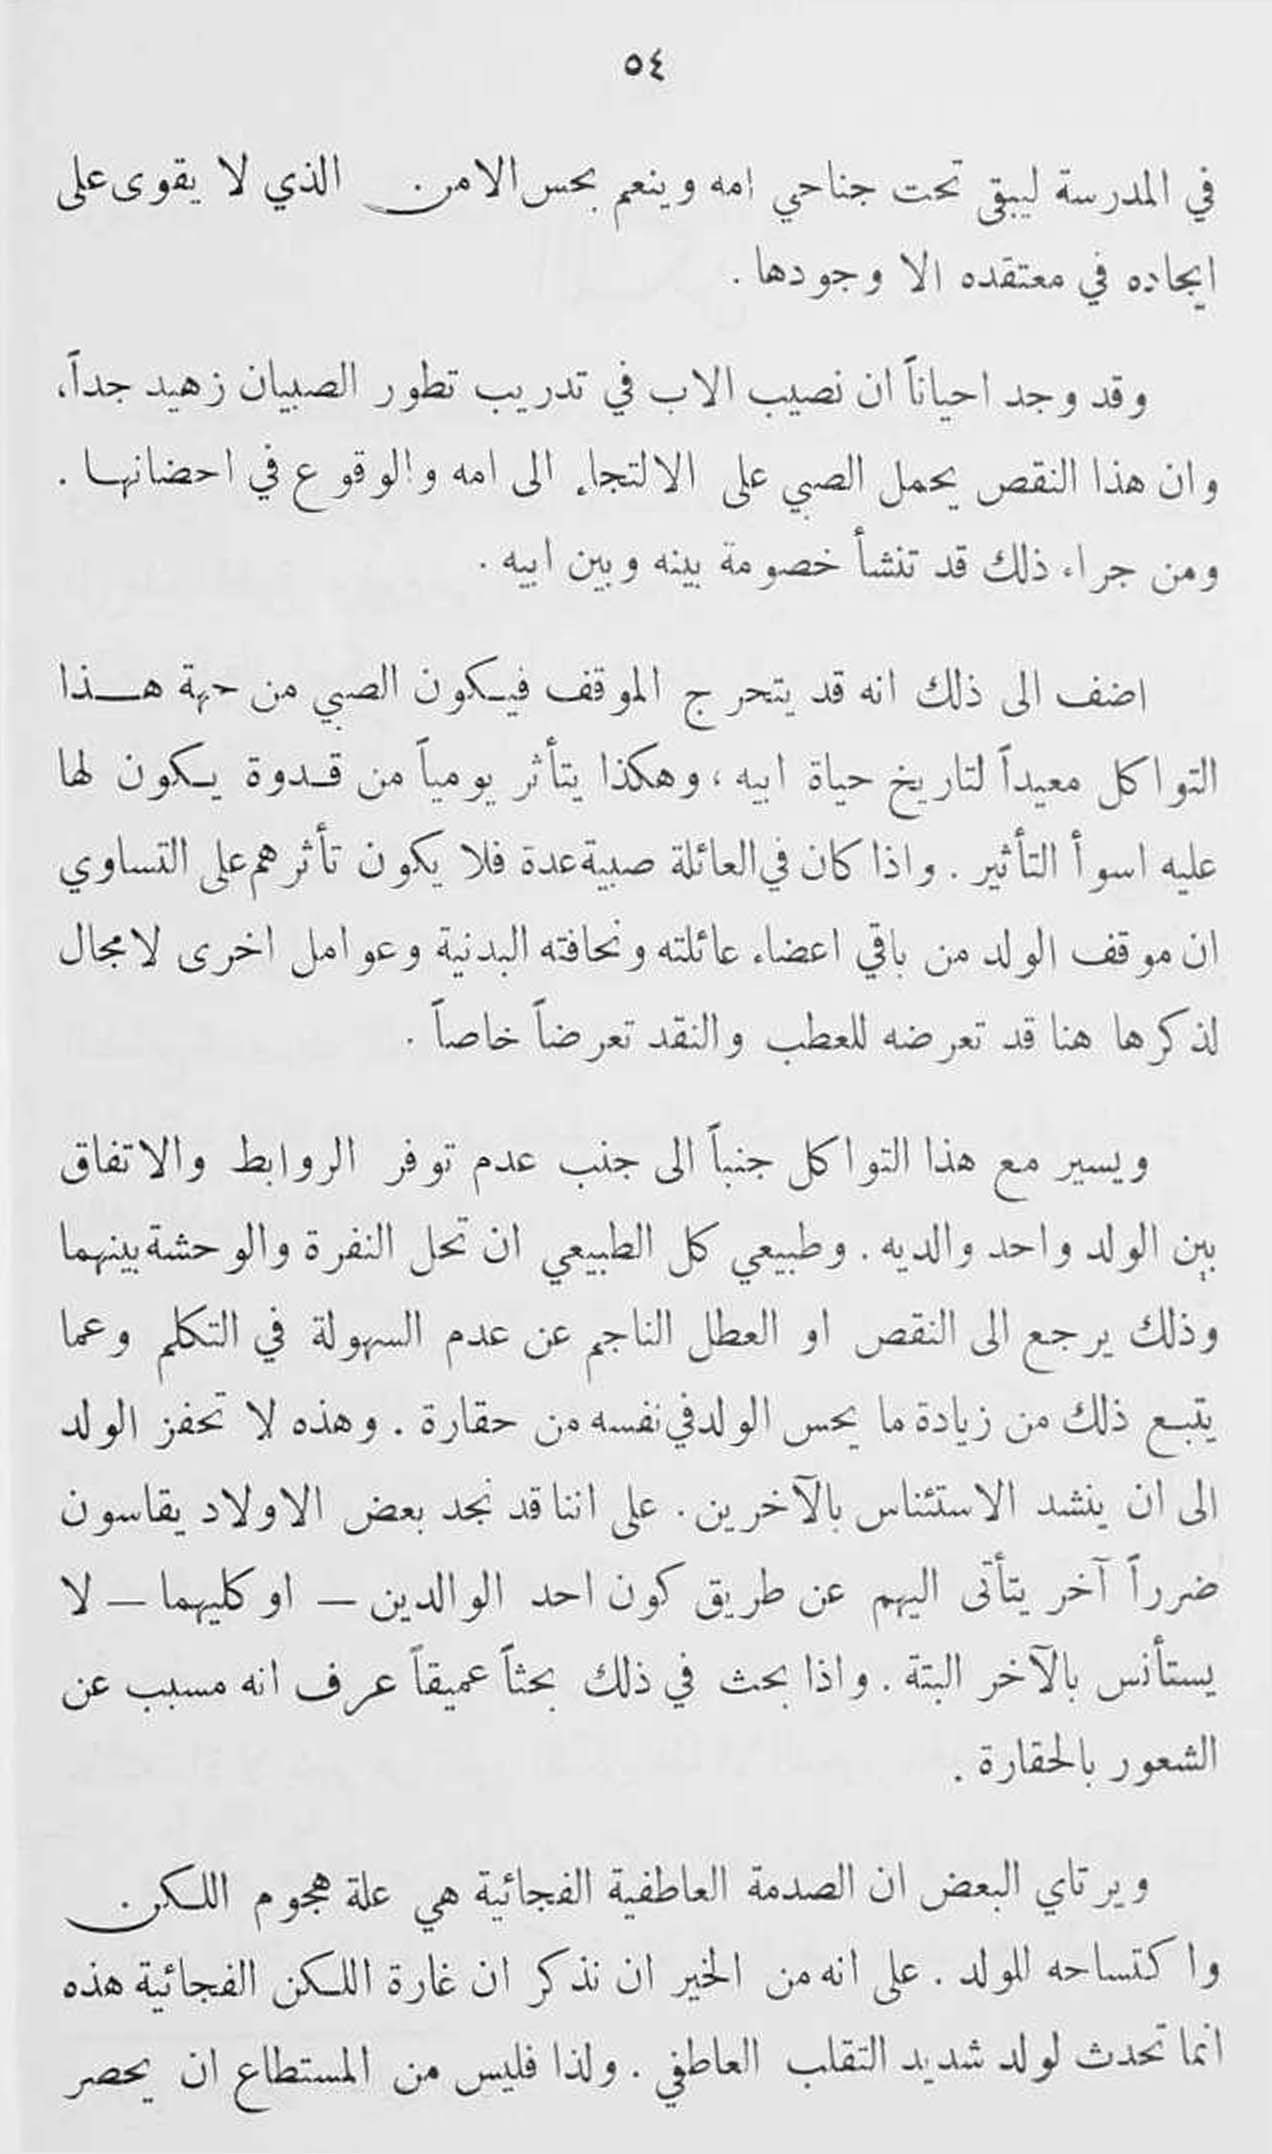 ٥٤
في المدرسة ليبقى تحت جناحي امه وينعم بحس الامن الذي لا يقوى على
ايجاده في معتقده الا وجودها .
وقد وجد احياناً ان نصيب الاب في تدريب تطور الصبيان زهيد جداً،
وان هذا النقص يحمل الصبي على الالتجاء الى امه والوقوع في احضانها .
ومن جراء ذلك قد تنشأ خصومة بينه وبين ابيه .
اضف الى ذلك انه قد يتحرج الموقف فيكون الصبي من جهة هذا
التواكل معيداً لتاريخ حياة ابيه ، وهكذا يتأثر يومياً من قدوة يكون لها
عليه اسوأ التأثير . واذا كان في العائلة صبية عدة فلا يكون تأثرهم على التساوي
ان موقف الولد من باقي اعضاء عائلته ونحافته البدنية وعوامل اخرى لا مجال
لذكرها هنا قد تعرضه للعطب والنقد تعرضاً خاصاً .
ويسير مع هذا التواكل جنباً الى جنب عدم توفر الروابط والاتفاق
بين الولد واحد والديه . وطبيعي كل الطبيعي ان تحل النفرة والوحشة بينهما
وذلك يرجع الى النقص او العطل الناجم عن عدم السهولة في التكلم وعما
يتبع ذلك من زيادة ما يحس الولد في نفسه من حقارة . وهذه لا تحفز الولد
الى ان ينشد الاستئناس بالآخرين . على اننا قد نجد بعض الاولاد يقاسون
ضرراً آخر يتأتى اليهم عن طريق كون احد الوالدين – او كليهما – لا
يستأنس بالآخر البتة . واذا بحث في ذلك بحثاً عميقاً عرف انه مسبب عن
الشعور بالحقارة .
ويرتاي البعض ان الصدمة العاطفية الفجائية هي علة هجوم اللكن
واكتساحه للولد . على انه من الخير ان نذكر ان غارة اللكن الفجائية هذه
انما تحدث لولد شديد التقلب العاطفي . ولذا فليس من المستطاع ان يحصر